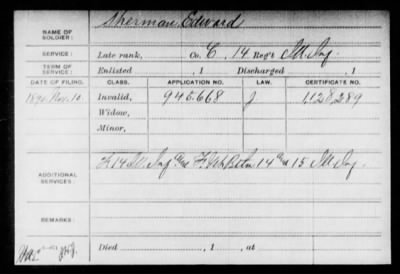 NAME OF SOLDIER: Sherman Edwards
SERVICE: Late rank, Co. C, 14 Reg't Ill. Inf.
TERM OF SERVICE: Enlisted , 1 Discharged , 1
DATE OF FILING. CLASS. APPLICATION NO. LAW. CERTIFICATE NO.
1890 Nov. 10. Invalid, 945.668 J. 1,128,289
Widow,
Minor,
ADDITIONAL SERVICES: F. 14 Ill. Inf. F. Vet Batn 14 and 15 Ill. Inf.
REMARKS:
Died , 1 , at